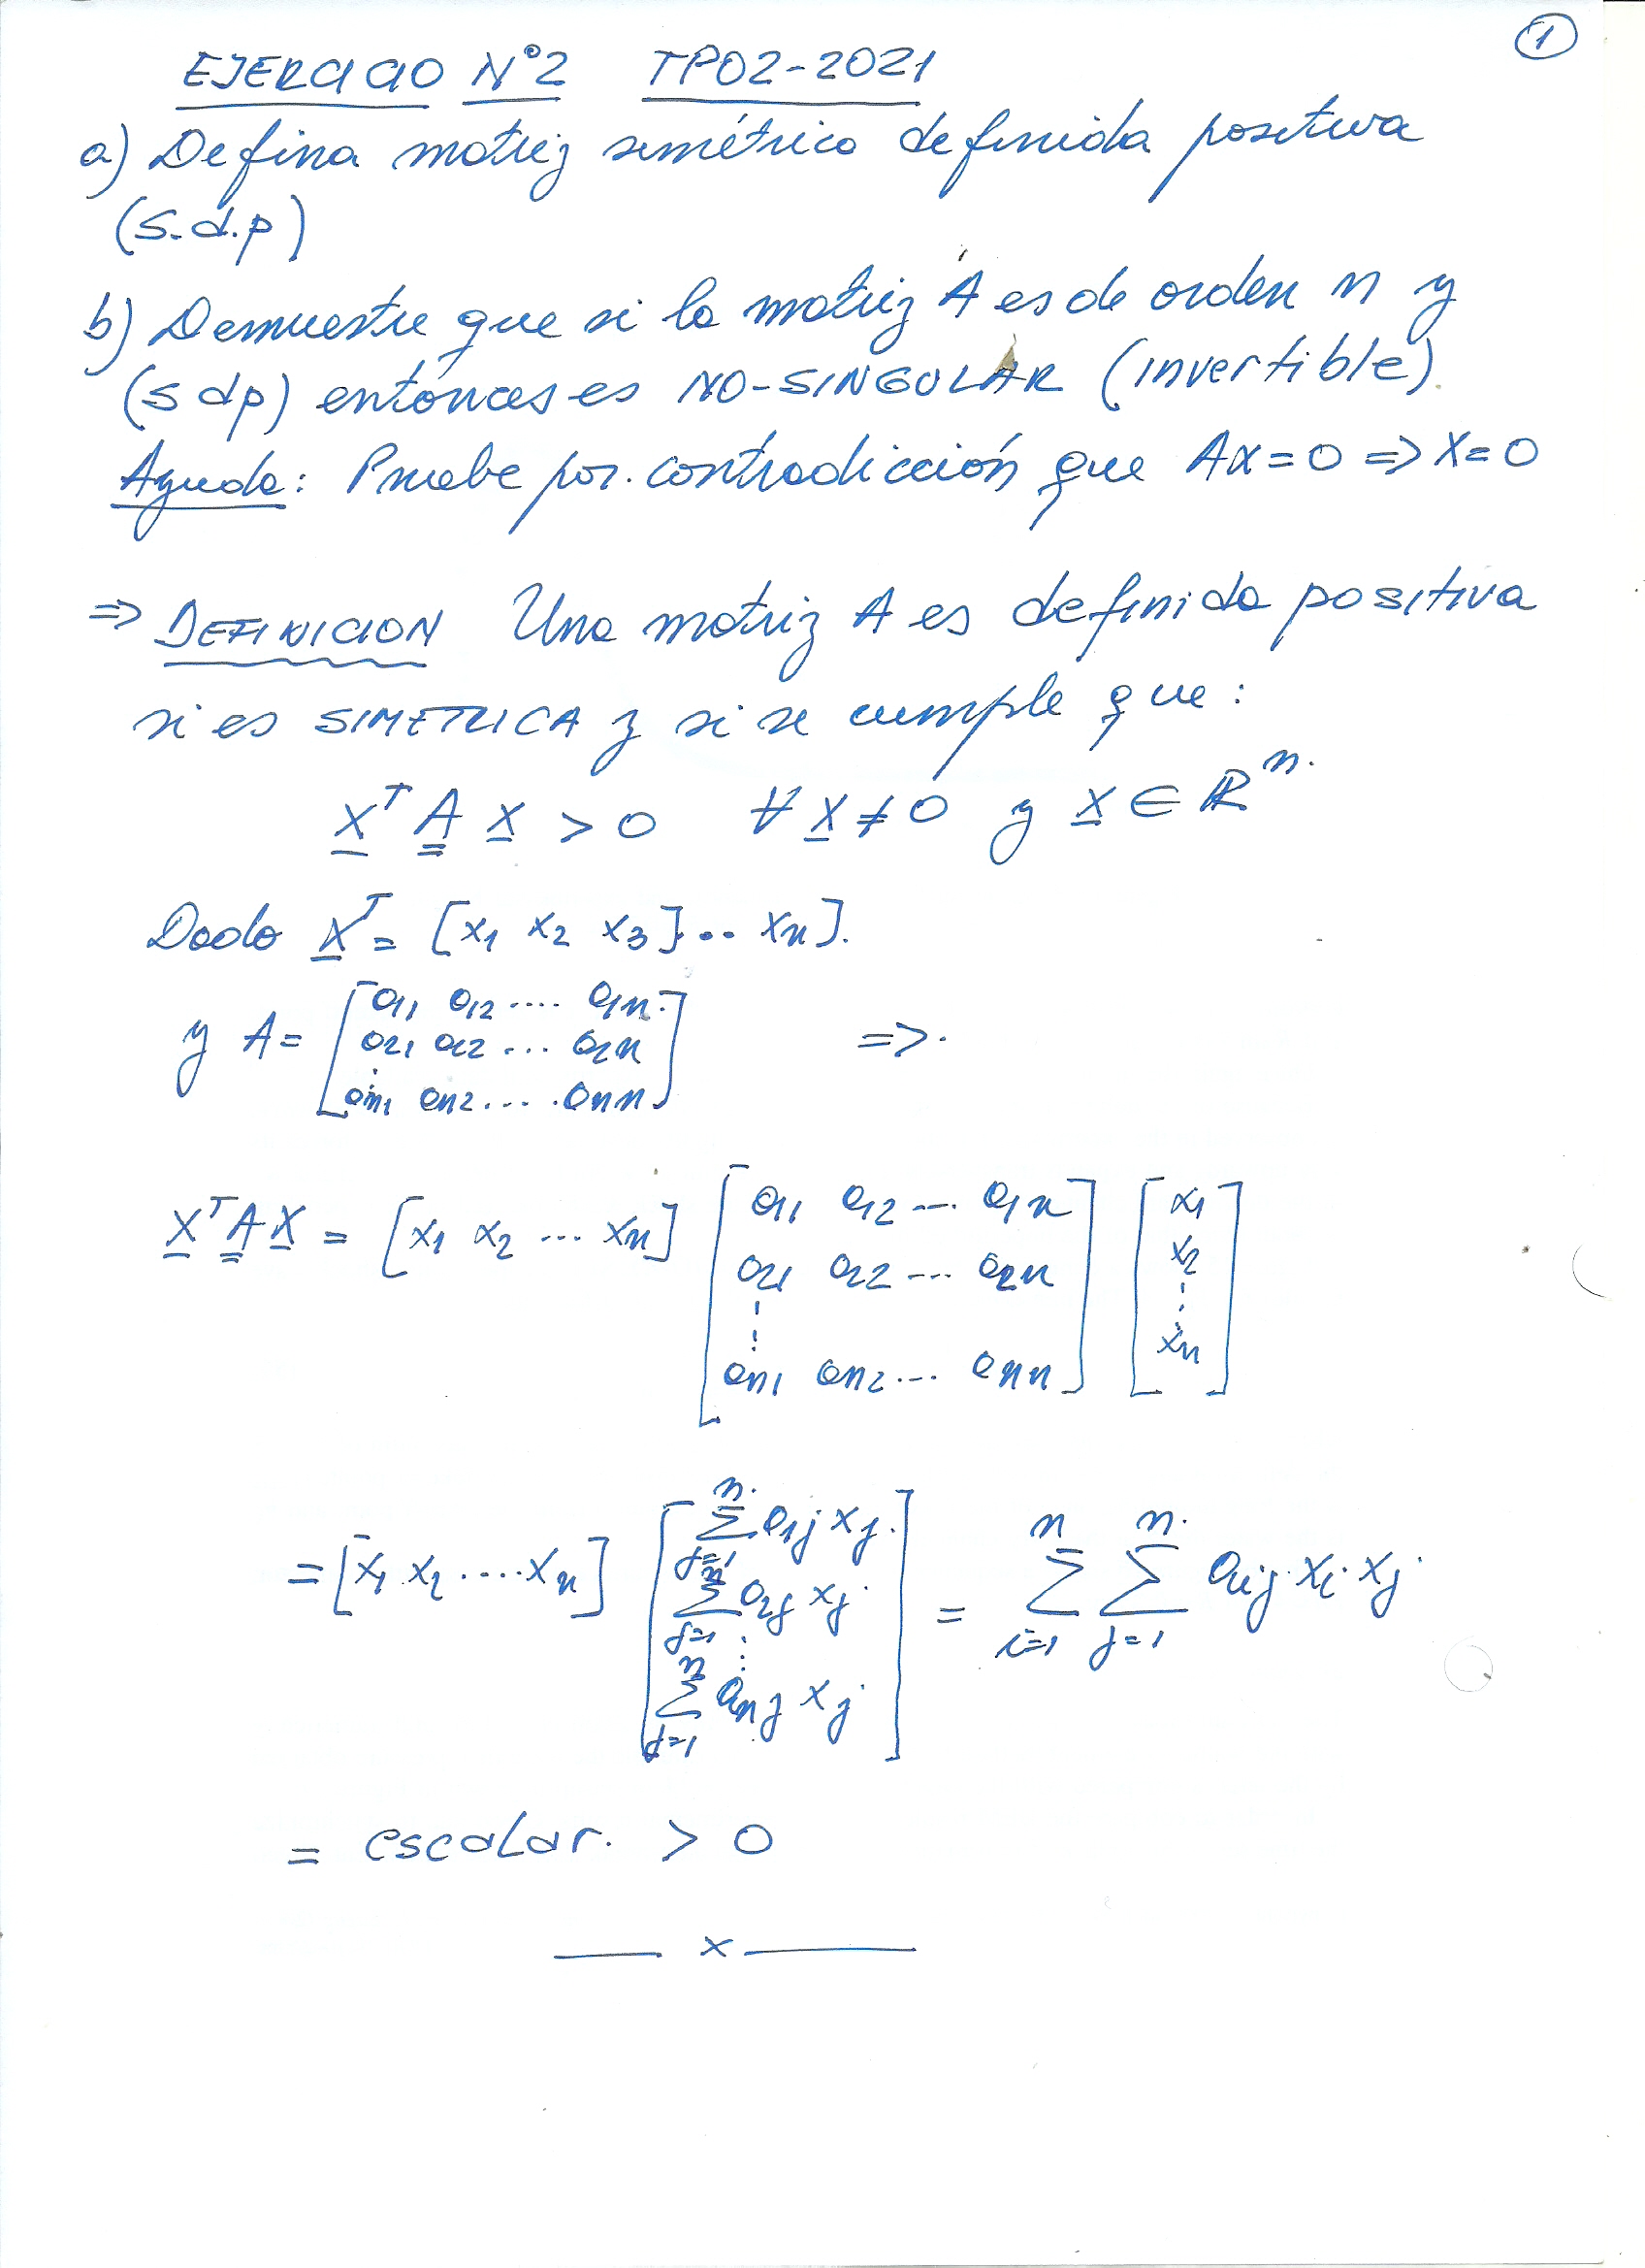 ①
EJERCICIO N°2 TP02-2021
a) Defina matriz simétrica definida positiva
(s.d.p)
b) Demuestre que si la matriz A es de orden n y
(sdp) entonces es NO-SINGULAR (invertible).
Ayuda: Pruebe por contradicción que Ax=0 => X=0
=> DEFINICION Una matriz A es definida positiva
si es SIMETRICA y si se cumple que:
X^T A X > 0 ∀ X ≠ 0 y X ∈ ℝ^n.
Dado X^T = [x1 x2 x3 ... xn].
y A = [a11 a12 .... a1n
a21 a22 ... a2n
an1 an2 .... ann] =>
X^T A X = [x1 x2 ... xn] [a11 a12 ... a1n; a21 a22 ... a2n; ⋮ an1 an2 ... ann] [x1; x2; ⋮ xn]
= [x1 x2 .... xn] [∑_{j=1}^{n} a1j xj; ∑_{j=1}^{n} a2j xj; ⋮ ∑_{j=1}^{n} anj xj] = ∑_{i=1}^{n} ∑_{j=1}^{n} aij·xi·xj
= escalar. > 0
—— x ———